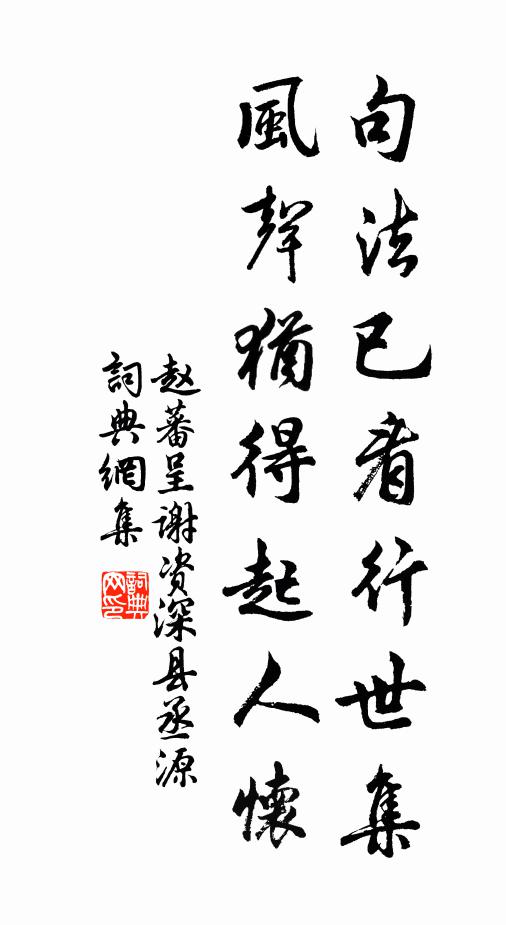 句法已看行世集
風聲猶得起人懷
赵蕃呈谢资深县丞源
詞典網集
詞典網印